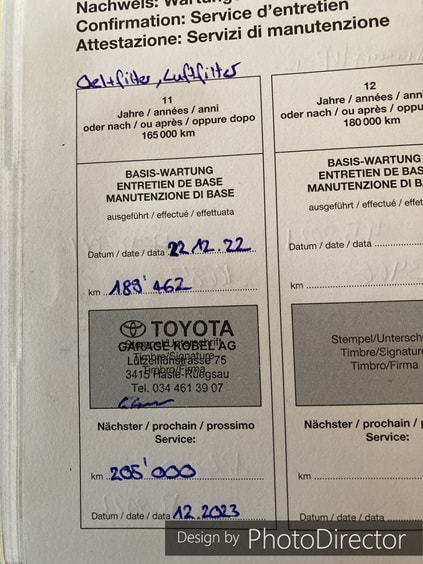 Nachweis: Wartung
Confirmation: Service d'entretien
Attestazione: Servizi di manutenzione
Oel+filter, Luftfilter
11
Jahre / années / anni
oder nach / ou après / oppure dopo
165 000 km
BASIS-WARTUNG
ENTRETIEN DE BASE
MANUTENZIONE DI BASE
ausgeführt / effectué / effettuata
Datum / date / data 22.12.22
km 189'462
TOYOTA
Stempel/Unterschrift
GARAGE KOBEL AG
Timbre/Signature
Lützelflühstrasse 75
Timbro/Firma
3415 Hasle-Rüegsau
Tel. 034 461 39 07
Nächster / prochain / prossimo
Service:
km 205'000
Datum / date / data 12.2023
12
Jahre / années / an
oder nach / ou après / oppu
180 000 km
BASIS-WARTUNG
ENTRETIEN DE BAS
MANUTENZIONE DI B
ausgeführt / effectué / effe
Datum / date / data
km
Stempel/Untersch
Timbre/Signature
Timbro/Firma
Nächster / prochain / p
Service:
km
Datum / date / data
Design by PhotoDirector